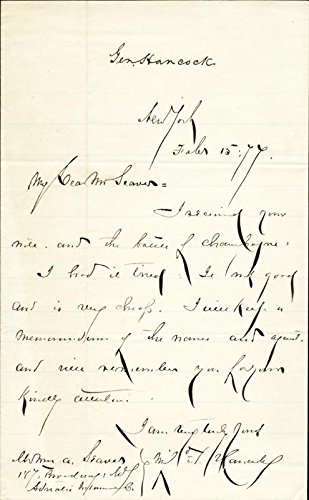 Gen. Hancock.
New York
Feb. 15. 77.
My Dear Mr Seaver =
I received your
note. and the bottle of Champagne:
I had it tried. Is not good
and is very cheap. I will keep a
memorandum of the names and agent.
and will remember you for your
kindly attention.
I am very truly yours
Wm. A. Seaver Winf'd S. Hancock
187. Broadway:
Adriatic Insurance Co.